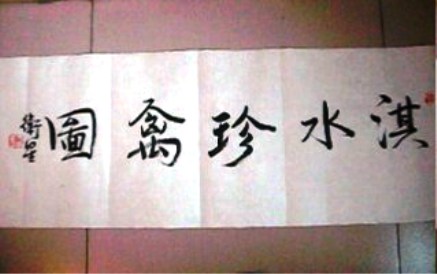 淇水珍禽圖
衛星